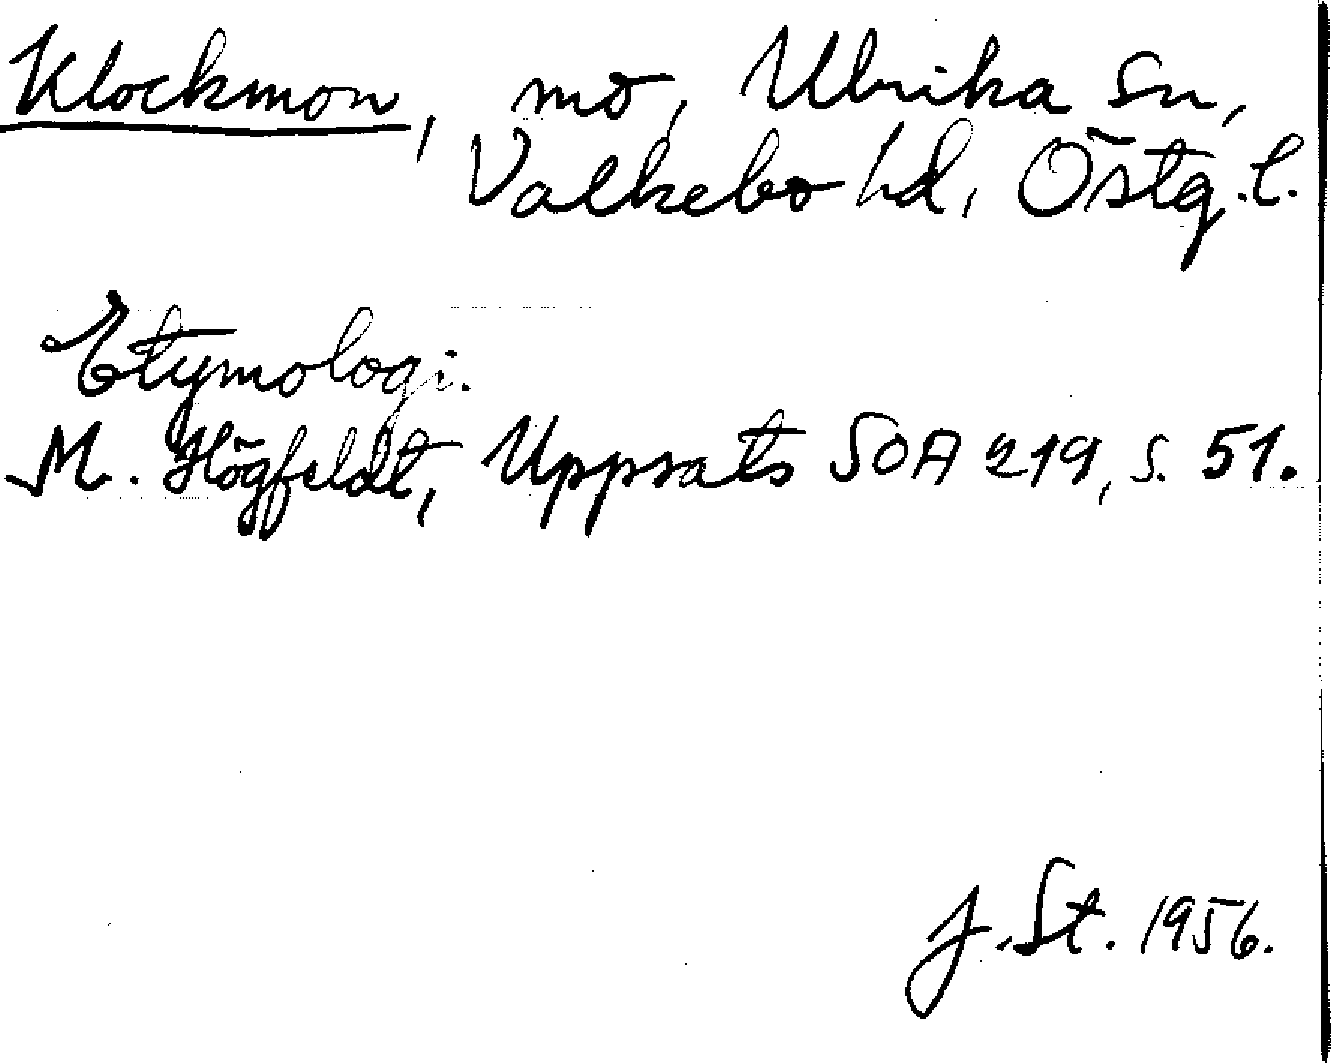 Klockmon, mo, Ulrika sn,
Valkebo hd, Östg. l.
Etymologi.
M. Högfeldt, Uppsats SOA 219, s. 51.
J. St. 1956.